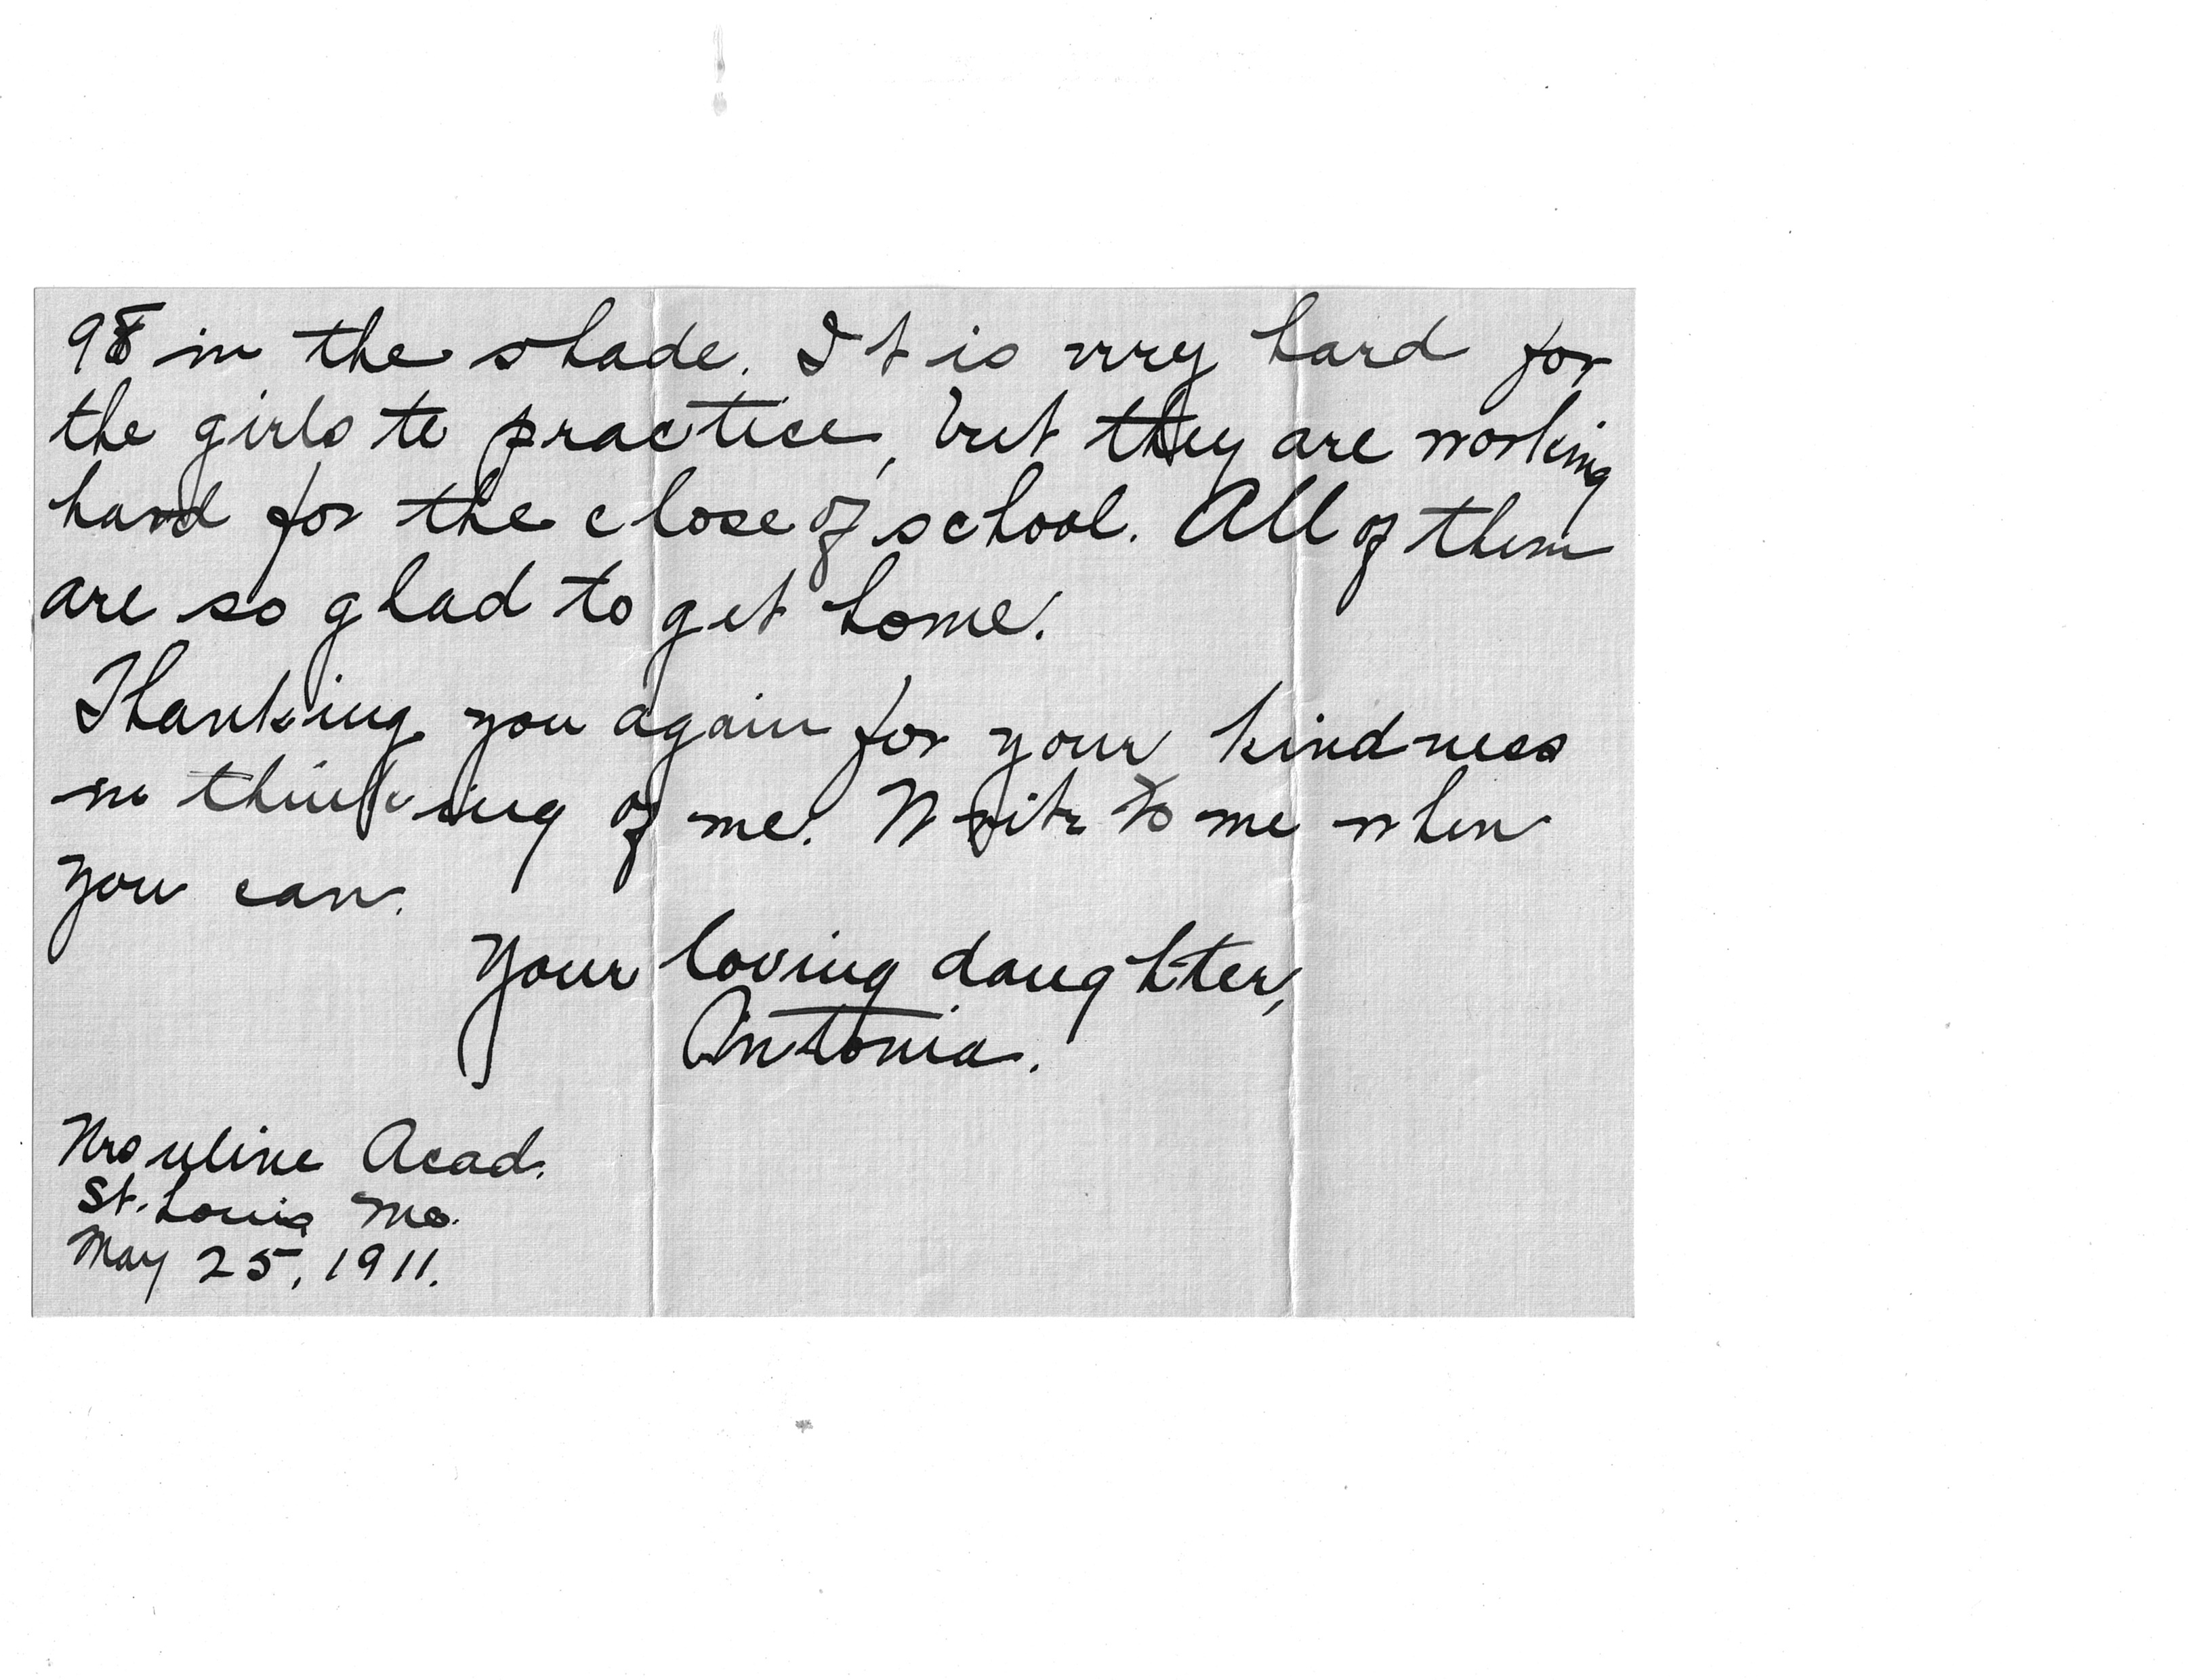 98 in the shade. It is very hard for
the girls to practice, but they are working
hard for the close of school. All of them
are so glad to get home.
Thanking you again for your kindness
in thinking of me. Write to me when
you can.
Your loving daughter,
Antonia.
Ursuline Acad.
St. Louis Mo.
May 25, 1911.